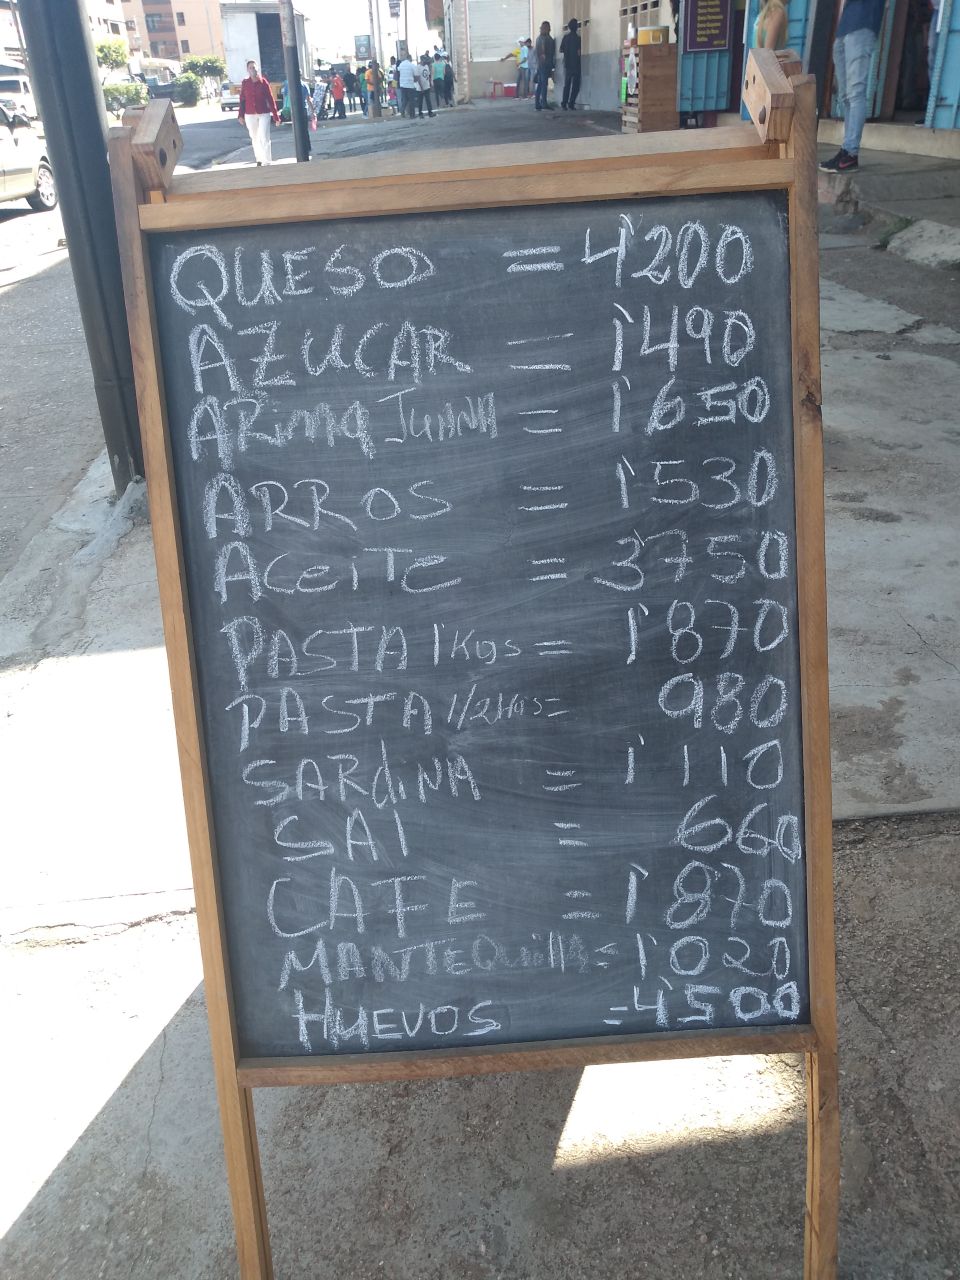 QUESO = 4'200
AZUCAR = 1'490
ARina Juana = 1'650
ARROS = 1'530
ACeiTe = 3'750
PASTA 1 Kgs = 1'870
PASTA 1/2 Kgs = 980
SARdiNA = 1'110
SAl = 660
CAFE = 1'870
MANTEQuilla = 1'020
HUEVOS = 4'500